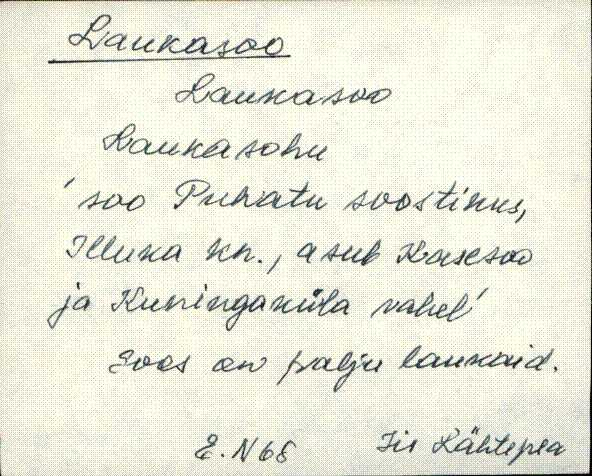 Laukasoo
Laukasoo
Laukasohu
'soo Puhatu soostikus,
Illuka kn., asub Kasesoo
ja Kuningaküla vahel'
Soos on palju laukaid.
E. N 68 Iis Lähtepea